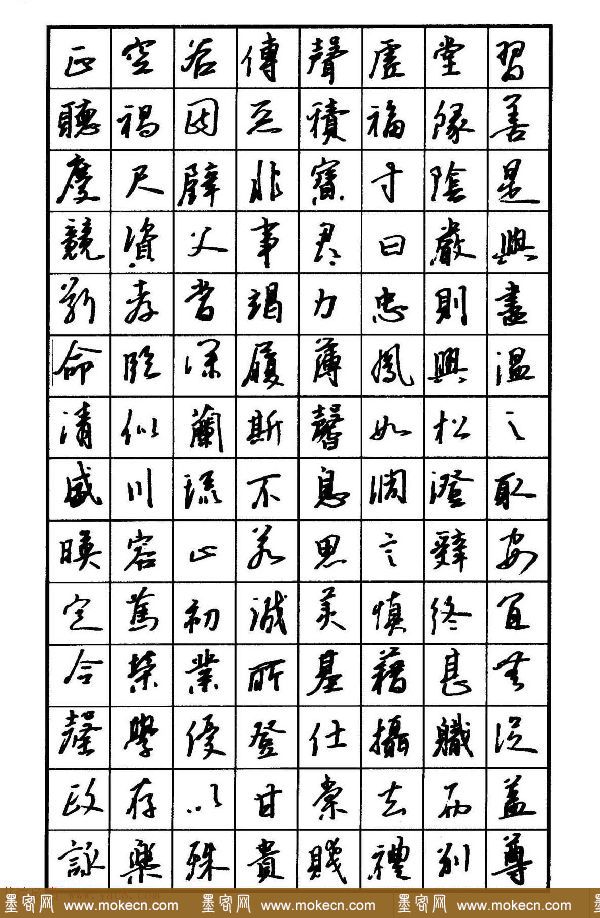 正空谷傳聲虛堂習
聽禍因惡積福緣善
慶尺璧非寶寸陰是
競資父事君曰嚴與
敬孝當竭力忠則盡
命臨深履薄夙興溫
清似蘭斯馨如松之
盛川流不息淵澄取
暎容止若思言辭安
定篤初誠美慎終宜
令榮業所基藉甚無
竟學優登仕攝職從
政存以甘棠去而益
詠樂殊貴賤禮別尊
墨客网 www.mokecn.com 墨客网 www.mokecn.com 墨客网 www.mokecn.com